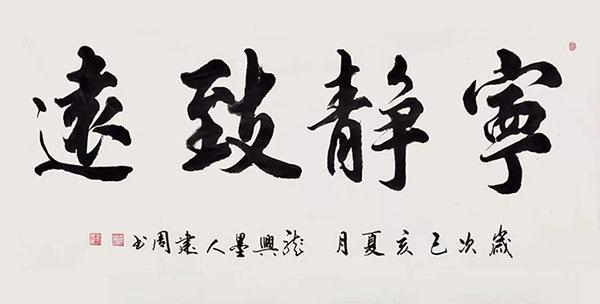 寧靜致遠
歲次己亥夏月 龍興墨人建周书